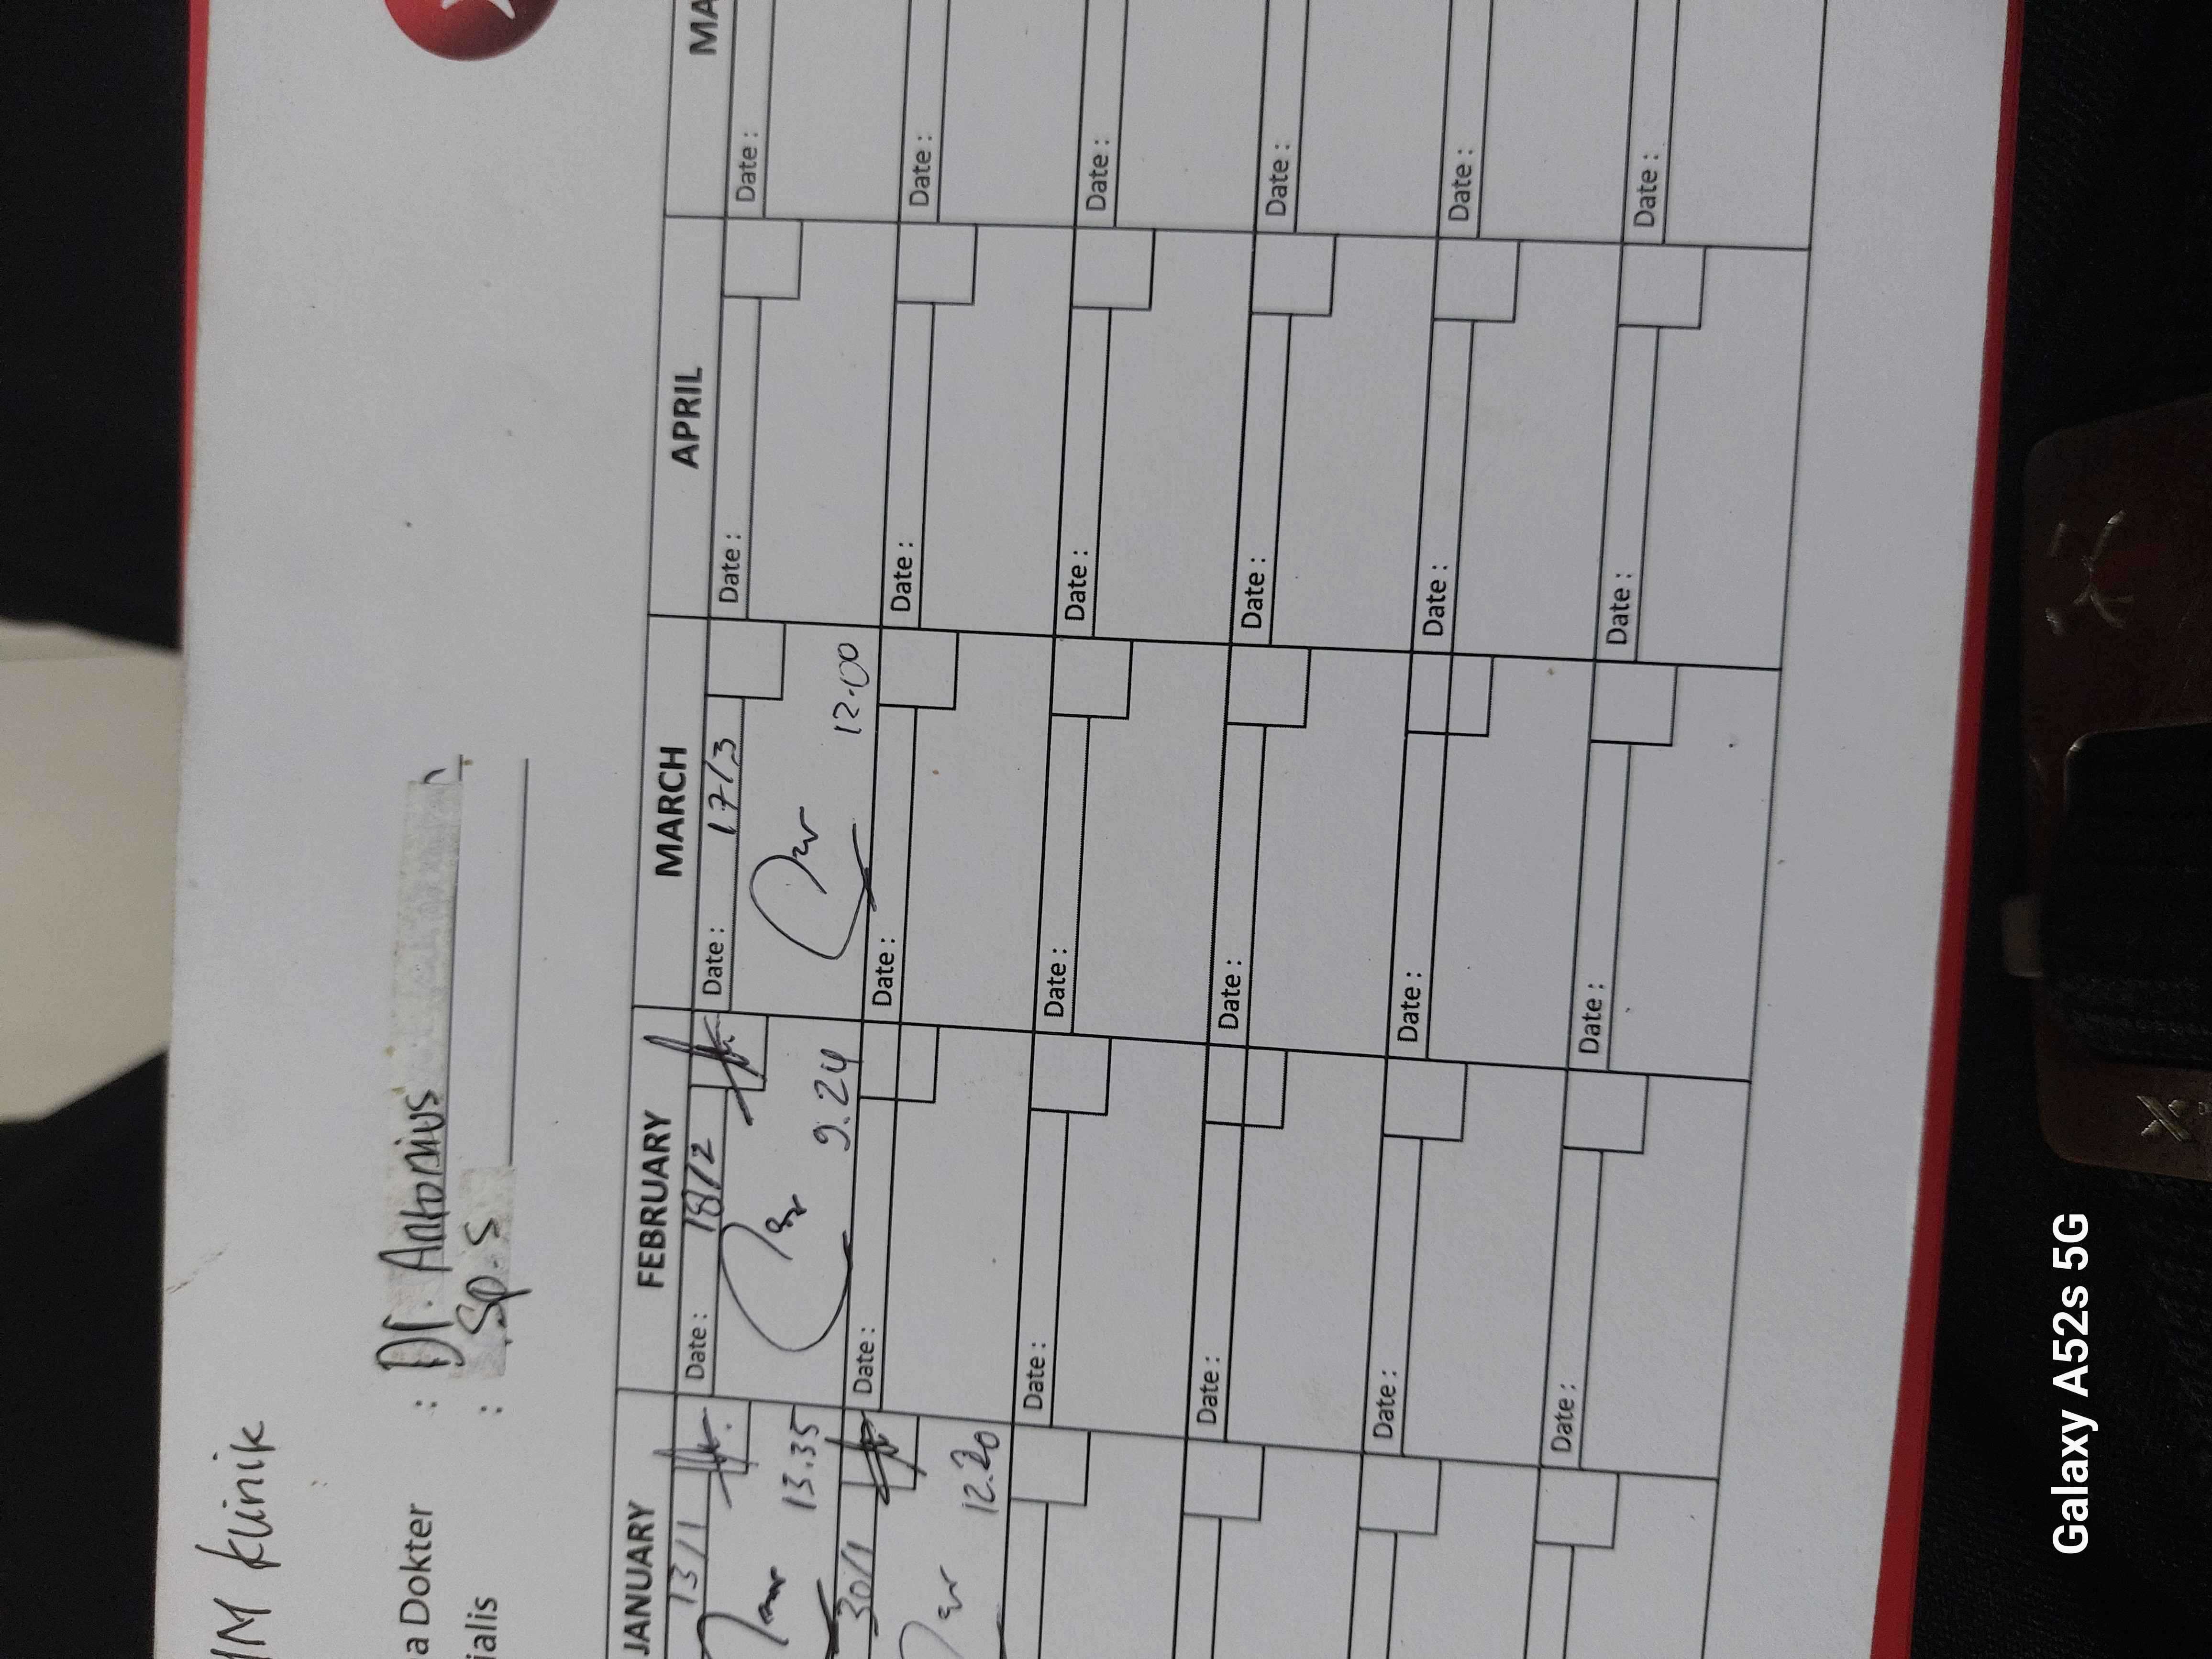 IM Klinik
a Dokter : Dr. Antonius
ialis : Sp. S
JANUARY FEBRUARY MARCH APRIL MA
13/1 Date : 18/2 Date : 17/3 Date : Date :
13.35 9.24 12.00
30/1 Date : Date : Date : Date :
12.20
Date : Date : Date : Date :
Date : Date : Date : Date :
Date : Date : Date : Date :
Date : Date : Date : Date :
Galaxy A52s 5G